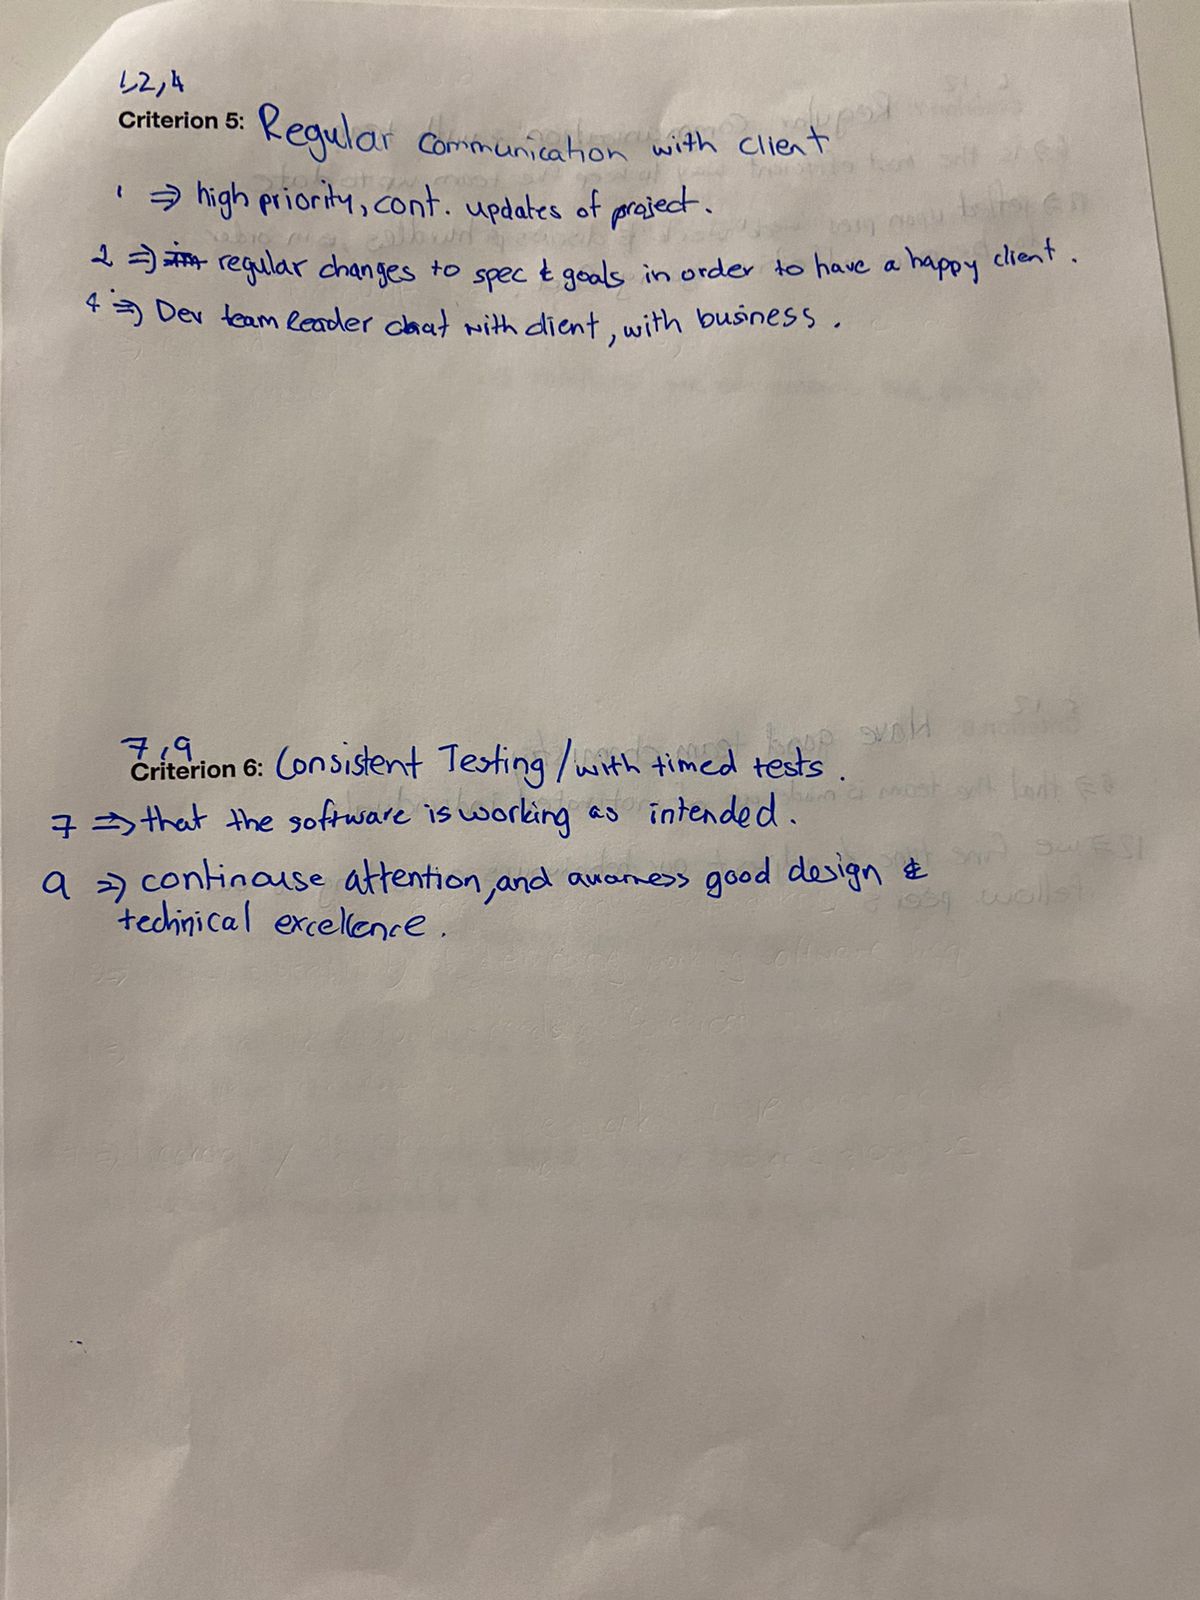 1,2,4
Criterion 5: Regular communication with client
1 ⇒ high priority, cont. updates of project.
2 ⇒ regular changes to spec & goals in order to have a happy client.
4 ⇒ Dev team leader chat with client, with business.
7,9
Criterion 6: Consistent Testing / with timed tests.
7 ⇒ that the software is working as intended.
9 ⇒ continouse attention, and awarness good design &
technical excellence.